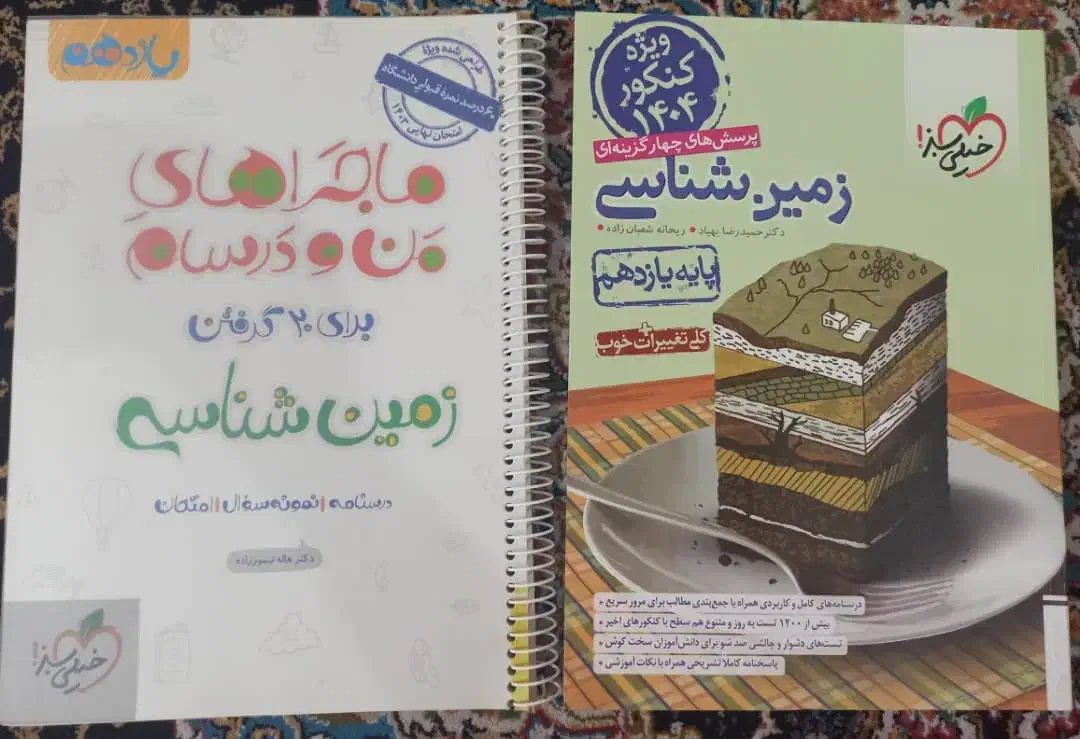 یازدهم
طراحی شده ویژهٔ
۶۰ درصد نمرهٔ قبولی دانشگاه
امتحان نهایی ۱۴۰۳
ماجراهای
من و درسام
برای ۲۰ گرفتن
زمین شناسی
درسنامه | نمونه سؤال | امتحان
دکتر هاله تیمورزاده
خیلی سبز!
ویژه
کنکور
۱۴۰۴
خیلی سبز!
پرسش‌های چهارگزینه‌ای
زمین شناسی
دکتر حمیدرضا بهیاد • ریحانه شعبان زاده •
پایه یازدهم
+
کلی تغییرات خوب
درسنامه‌های کامل و کاربردی همراه با جمع‌بندی مطالب برای مرور سریع •
بیش از ۱۲۰۰ تست به روز و متنوع هم سطح با کنکورهای اخیر •
تست‌های دشوار و چالشی صد شو برای دانش‌آموزان سخت کوش •
پاسخنامه کاملاً تشریحی همراه با نکات آموزشی •